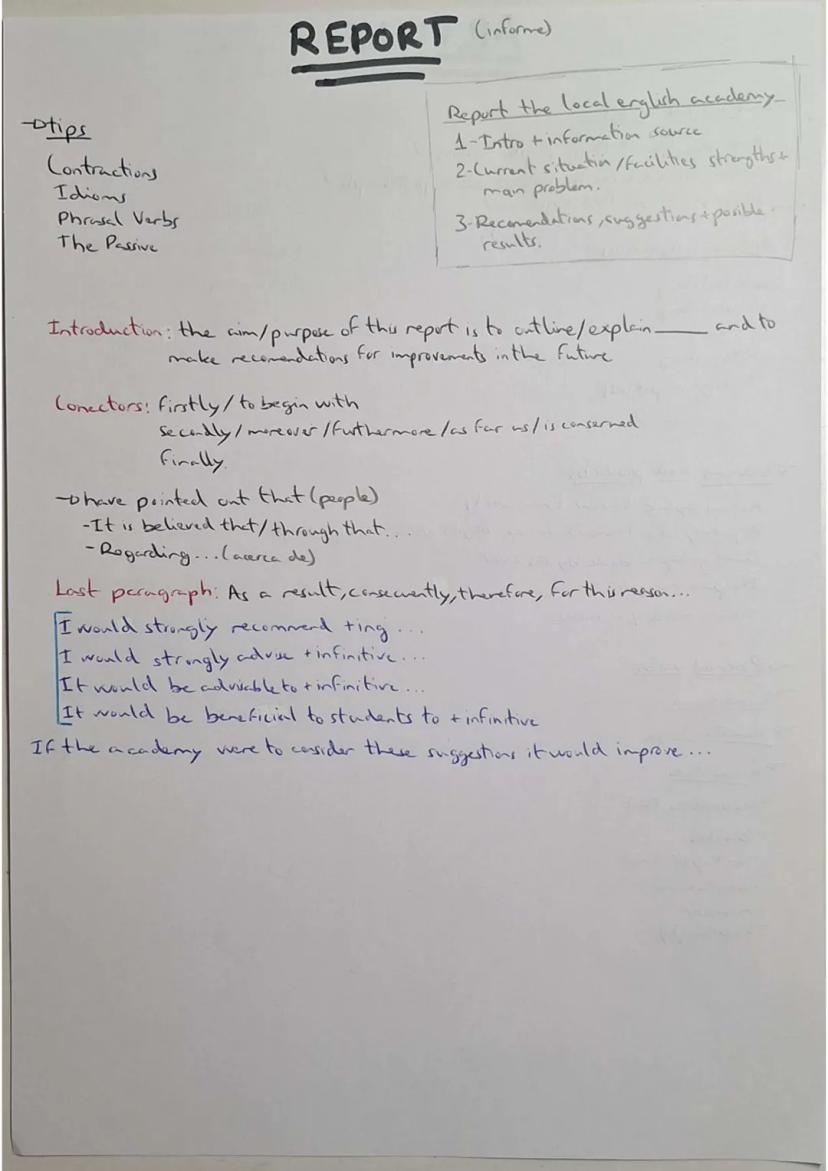 REPORT (informe)
→tips
Contractions
Idioms
Phrasal Verbs
The Passive
Report the local english academy
1-Intro + information source
2-Current situation/facilities strengths +
main problem.
3-Recomendations, suggestions + posible
results.
Introduction: the aim/purpose of this report is to outline/explain ____ and to
make recomendations for improvements in the future
Conectors: firstly/to begin with
secondly/moreover/furthermore/as far us/is conserned
finally.
→have pointed out that (people)
-It is believed that/through that...
-Regarding...(acerca de)
Last paragraph: As a result, consecuently, therefore, for this reason...
I would strongly recommend +ing...
I would strongly advise + infinitive...
It would be advisable to + infinitive...
It would be beneficial to students to + infinitive
If the academy were to consider these suggestions it would improve...